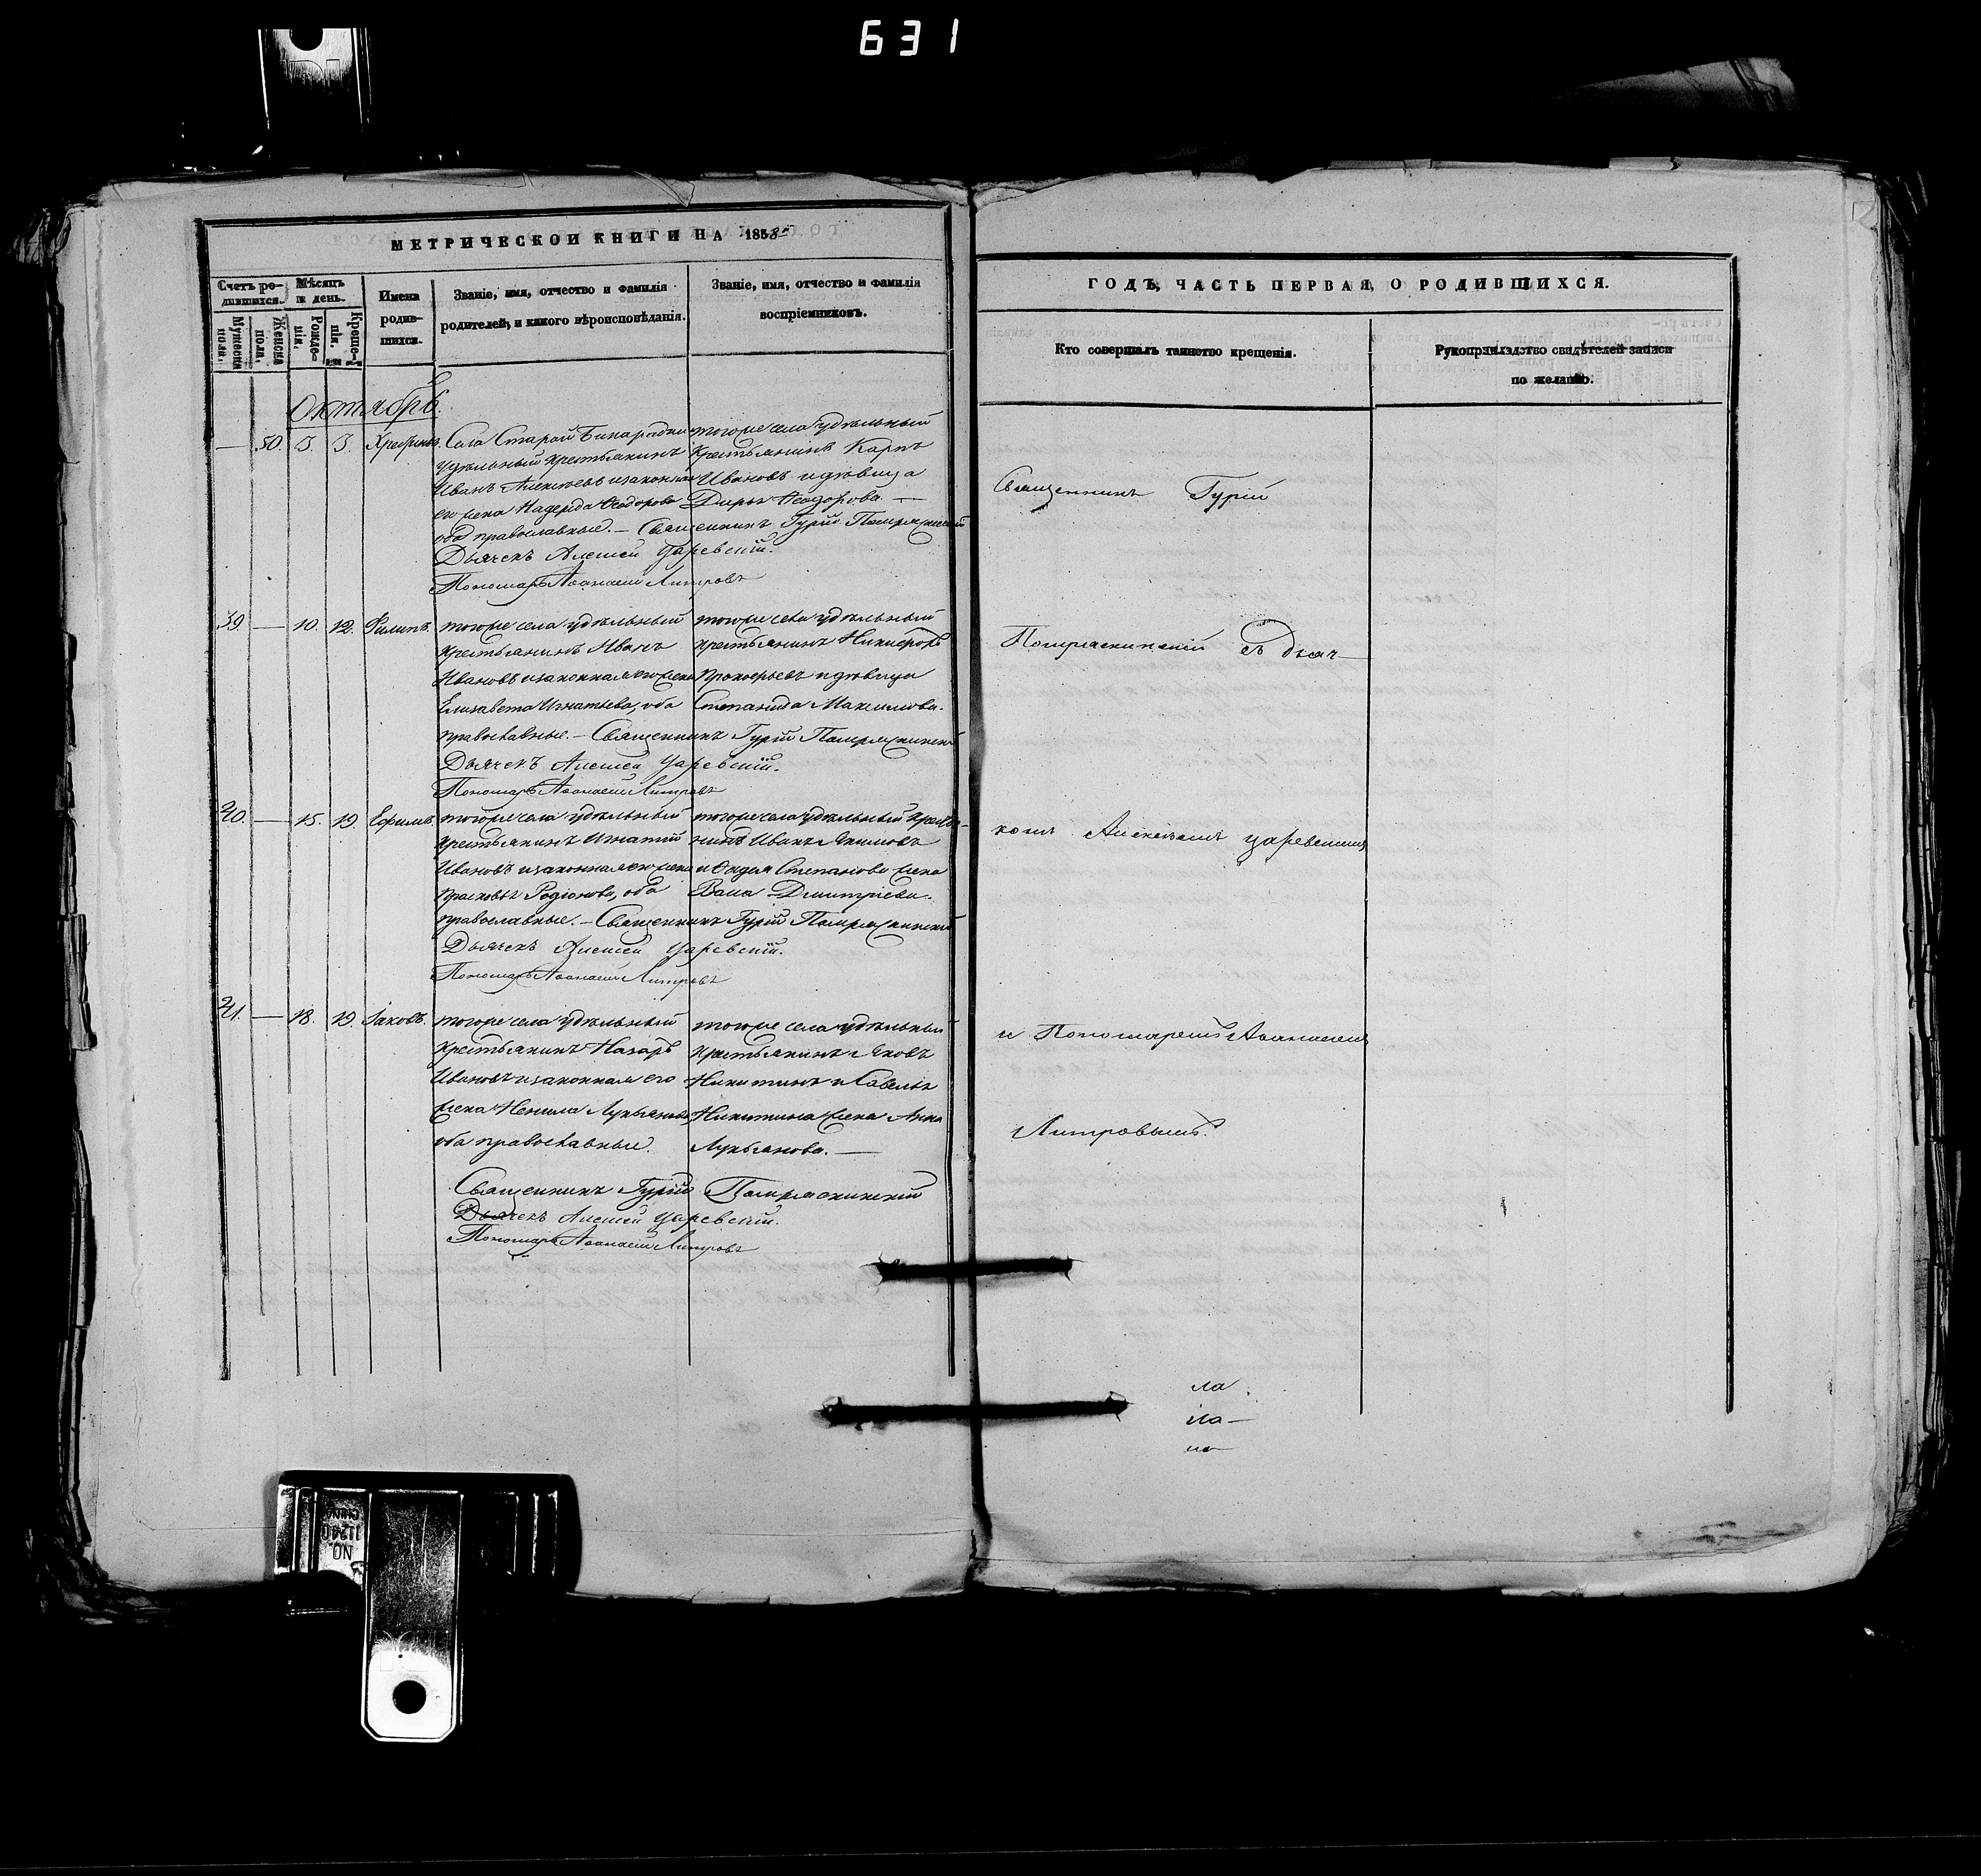 631
МЕТРИЧЕСКОЙ КНИГИ НА 1858й
Счетъ родившихся.
Мужеска пола,
Женска пола,
Мѣсяцъ и день.
Рожденія,
Крещенія.
Имена родившихся.
Званіе, имя, отчество и фамилія
родителей, и какого вѣроисповѣданія.
Званіе, имя, отчество и фамилія
воспріемниковъ.
Октябрь.
— 50. 3. 3.
Села Старой Бинарадки
удѣльный крестьянинъ
Иванъ Алексѣевъ и законная
его жена Надежда Ѳеодорова
оба православные. — Священникъ Гурій
Дьячекъ Алексей Царевскій.
Пономарь Аѳанасій
тогоже села удѣльный
крестьянинъ Карпъ
Ивановъ и дѣвица
Дарья Ѳеодорова. —
39. — 10. 12. Филипъ.
тогоже села удѣльный
крестьянинъ Иванъ
Ивановъ и законная его жена
Елизавета Игнатьева, оба
православные. — Священникъ Гурій
Дьячекъ Алексей Царевскій.
Пономарь Аѳанасій
тогоже села удѣльный
крестьянинъ Никифоръ
Прокофьевъ и дѣвица
Степанида Максимова.
40. — 15. 19. Ефимъ.
тогоже села удѣльный
крестьянинъ Игнатій
Ивановъ и законная его жена
Прасковья Родіонова, оба
православные. — Священникъ Гурій
Дьячекъ Алексей Царевскій.
Пономарь Аѳанасій
тогоже села удѣльный крестья-
нинъ Иванъ Якимовъ
и Степанова жена
Дмитріева.
41. — 18. 19. Іаковъ.
тогоже села удѣльный
крестьянинъ Назаръ
Ивановъ и законная его
жена Ненила Лукьянова,
оба православные.
тогоже села удѣльный
крестьянинъ Яковъ
Никитинъ и Савелья
Никитина жена Анна
Лукьянова. —
Священникъ Гурій
Дьячекъ Алексей Царевскій.
Пономарь Аѳанасій
ГОДЪ, ЧАСТЬ ПЕРВАЯ, О РОДИВШИХСЯ.
Кто совершалъ таинство крещенія.
Рукоприкладство свидѣтелей записи
по желанію.
Священникъ Гурій
съ дьяч-
комъ Алексѣемъ Царевскимъ
и Пономаремъ Аѳанасіемъ
ла